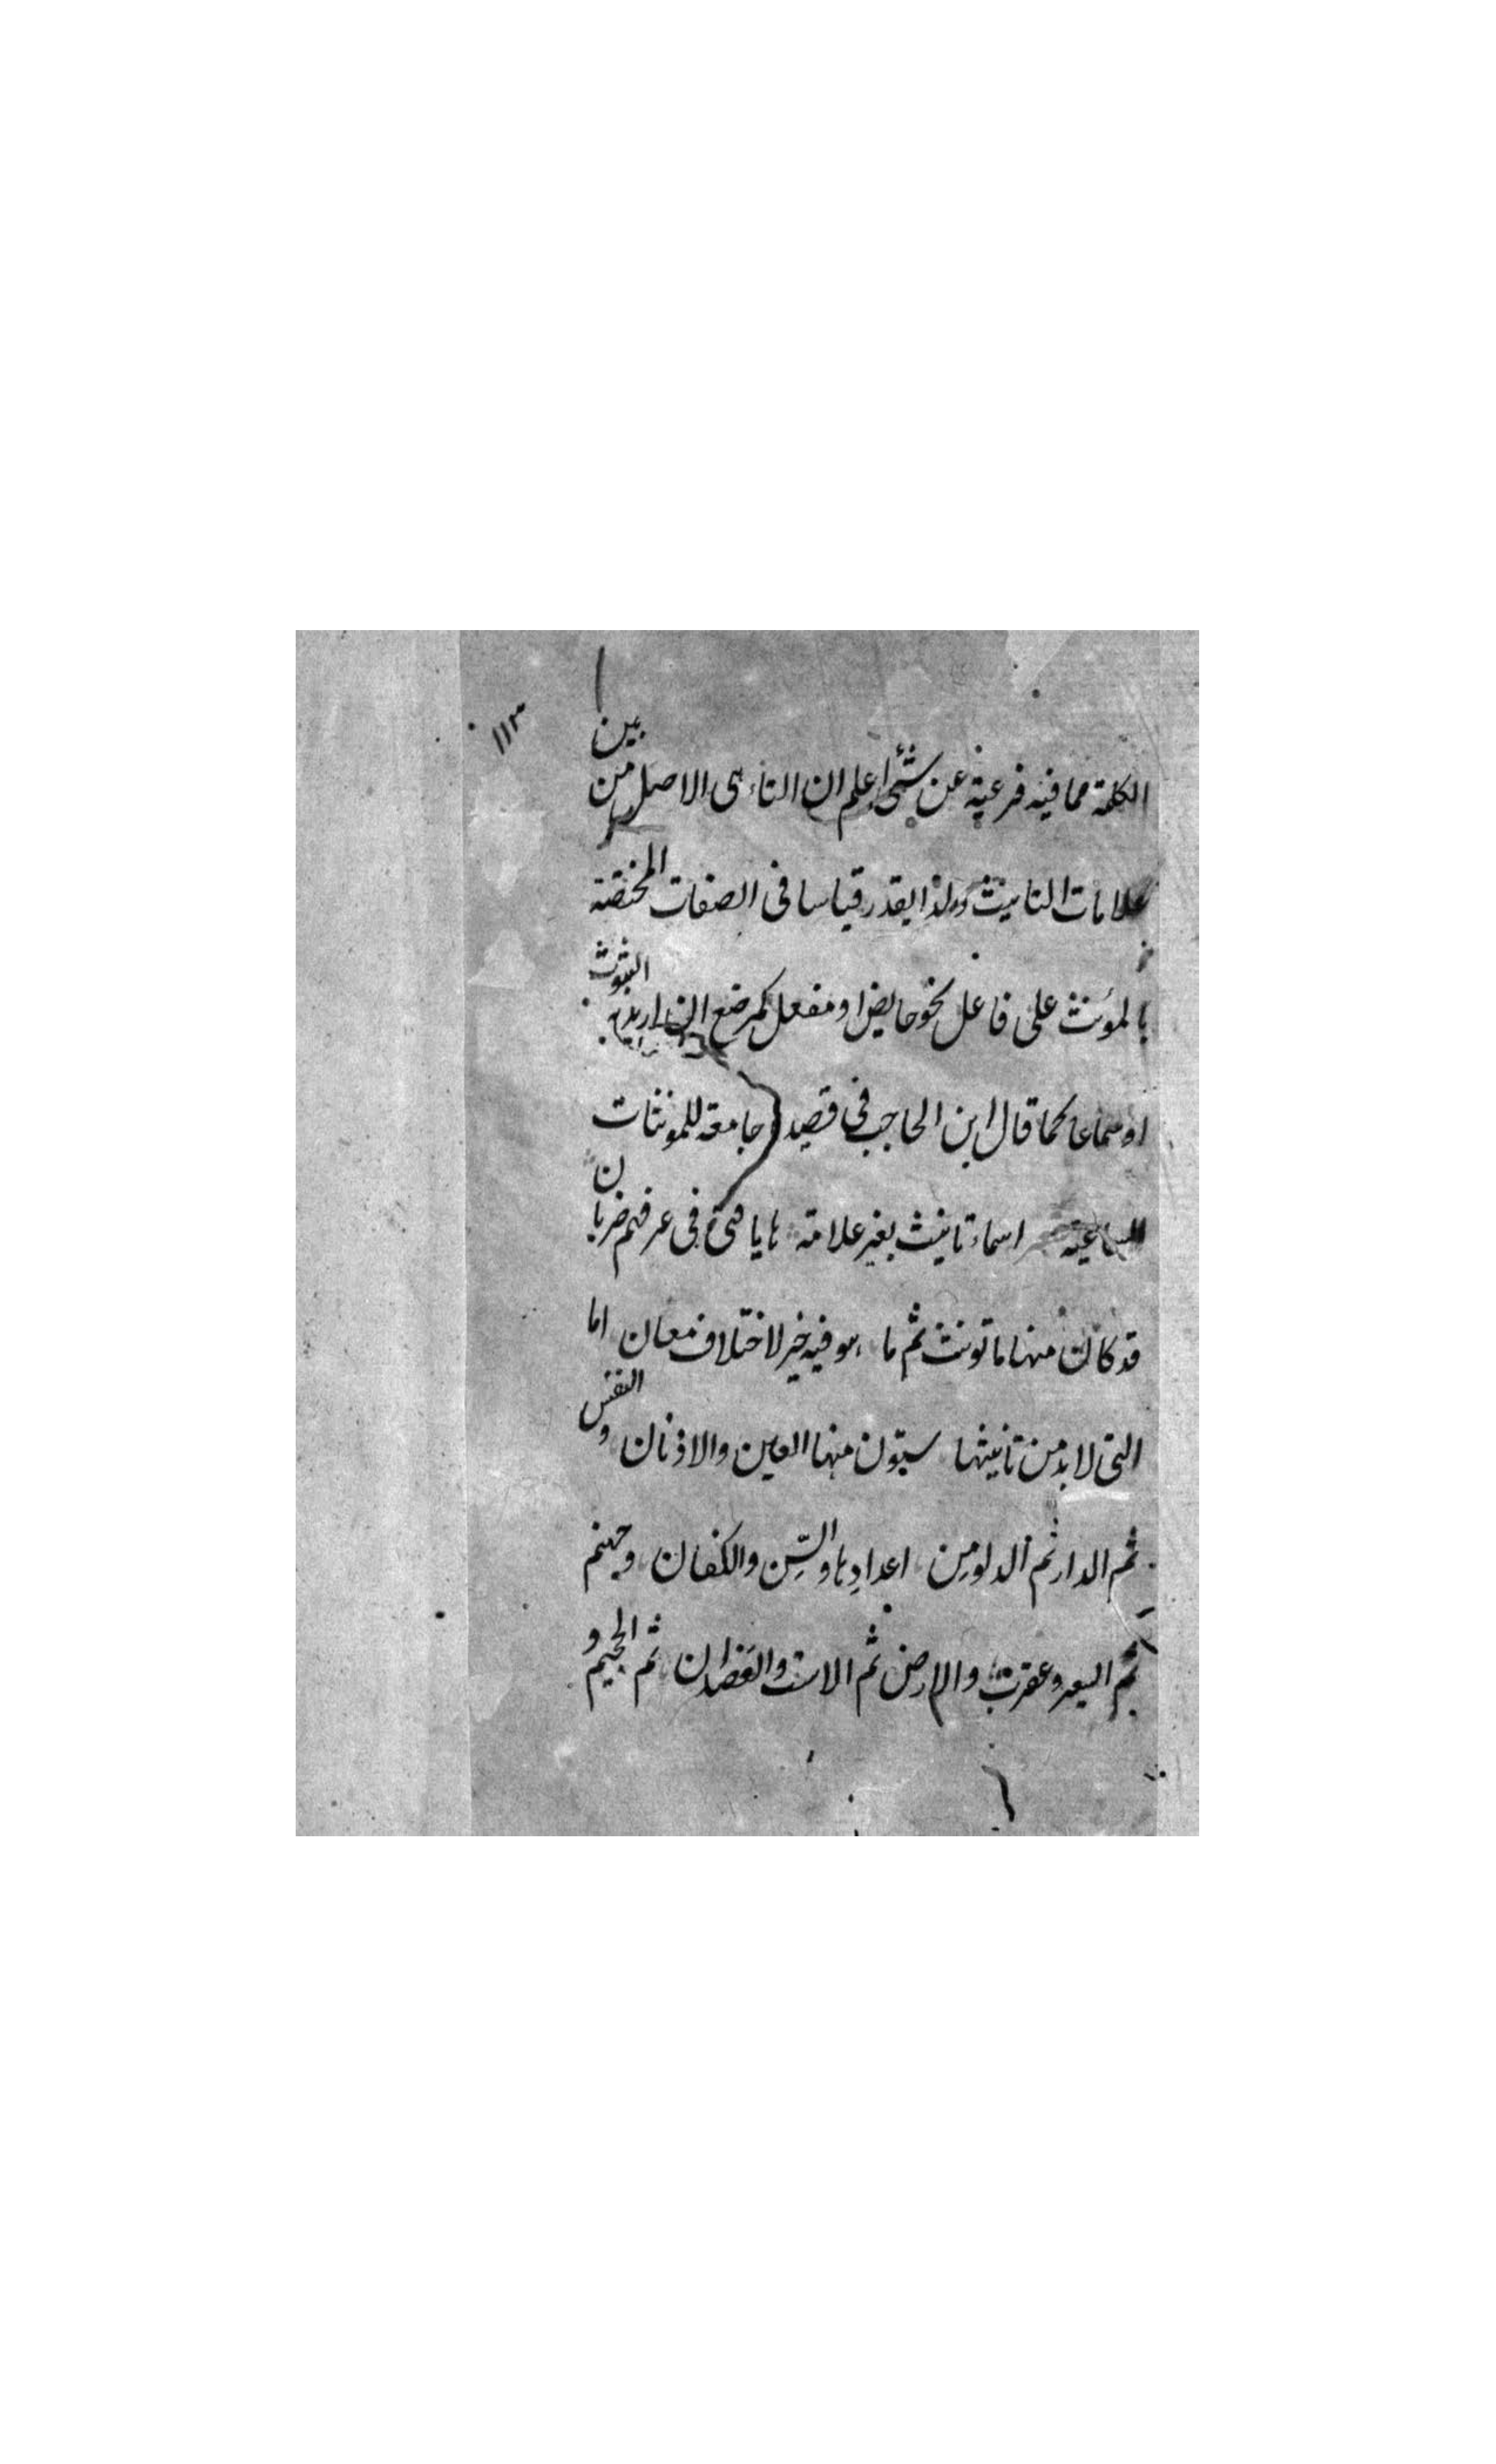 ١١٣
الكلمة مما فيه فرعية عن شئ اعلم ان التاء هى الاصل من بين
علامات التانيث ولذا يقدر قياسا فى الصفات المختصة
بالمؤنث على فاعل نحو حايض او مفعل كمرضع ان اريد به الثبوت
او سماعا كما قال ابن الحاجب فى قصيدة جامعة للمونثات
السماعية اسماء تانيث بغير علامة هى يا فتى فى عرفهم ضربان
قد كان منها ما تونث ثم ما هو فيه خير لاختلاف معان اما
التى لا بد من تانيثها ستون منها العين والاذنان والنفس
ثم الدار ثم الدلو من اعدادها والسِّن والكفان وجهنم
ثم السعير وعقرب والارض ثم الاست والعضدان ثم الجحيم و